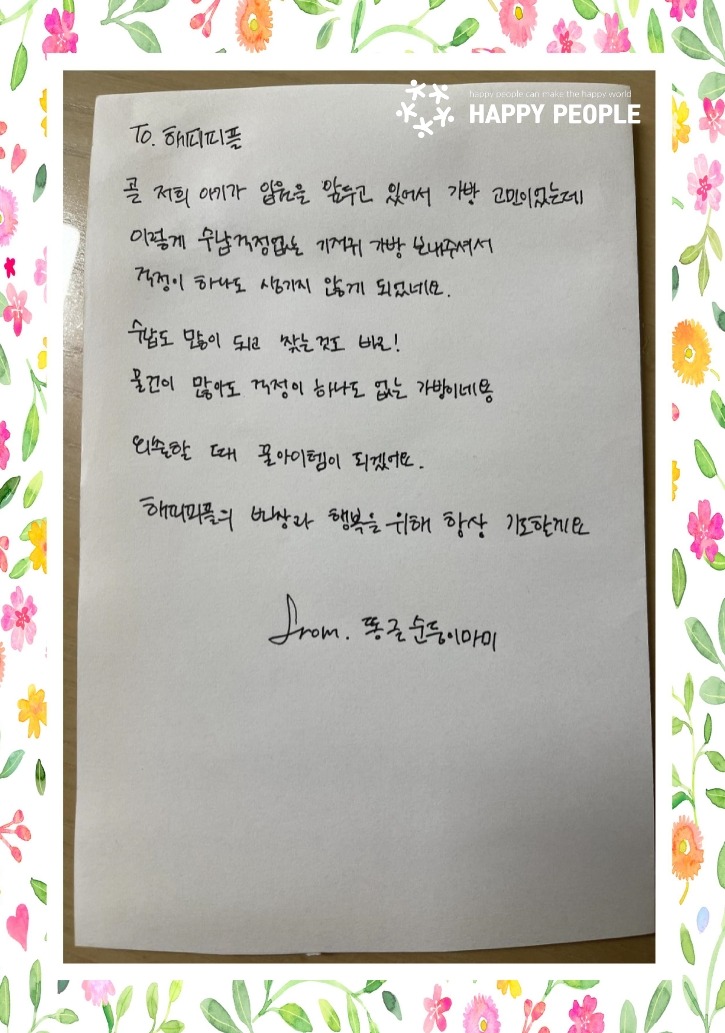 happy people can make the happy world
HAPPY PEOPLE
To. 해피피플
곧 저희 아기가 입원을 앞두고 있어서 가방 고민이었는데
이렇게 수납걱정없는 기저귀 가방 보내주셔서
걱정이 하나도 생기지 않게 되었네요.
수납도 많이 되고 찾는것도 바로!
물건이 많아도 걱정이 하나도 없는 가방이네용
외출할 때 꿀아이템이 되겠어요.
해피피플의 비상과 행복을 위해 항상 기도할게요
from. 똥글순둥이마미